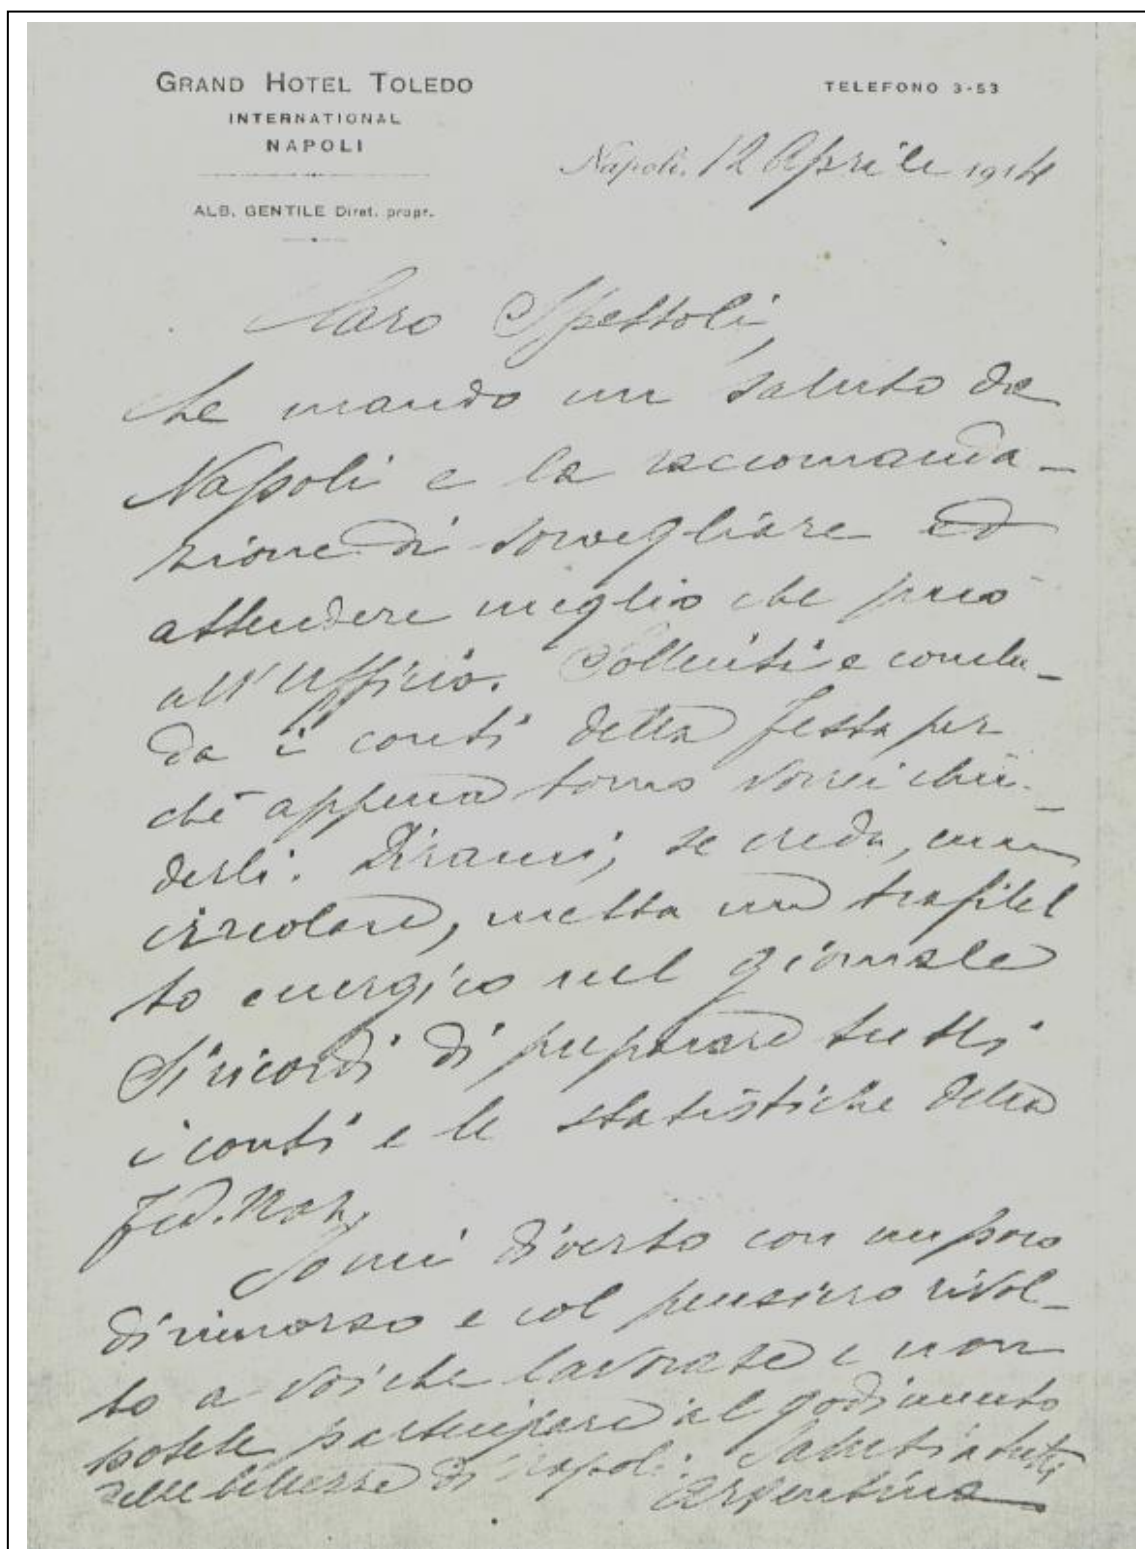 GRAND HOTEL TOLEDO
INTERNATIONAL
NAPOLI
ALB. GENTILE Diret. propr.
TELEFONO 3-53
Napoli, 12 Aprile 1914
Caro Spettoli,
Le mando un saluto da
Napoli e la raccomanda-
zione di sorvegliare ed
attendere meglio che può
all'Ufficio. Solleciti e conclu-
da i conti della festa per
chè appena torno vorrei chiu-
derli. Dirami, se crede, una
circolare, metta un trafilet
to energico nel giornale
Si ricordi di preparare tutti
i conti e le statistiche della
Fed. Naz.
Io mi diverto con un poco
di rimorso e col pensiero rivol-
to a voi che lavorate e non
potete partecipare al godimento
delle bellezze di Napoli. Saluti a tutti
Argentina